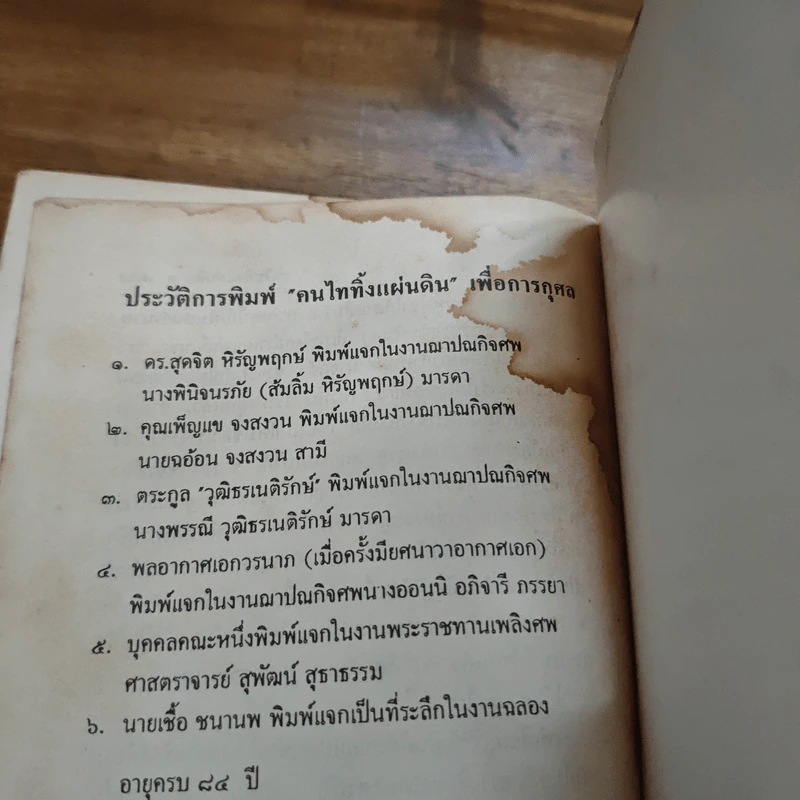 ประวัติการพิมพ์ "คนไททิ้งแผ่นดิน" เพื่อการกุศล
๑. ดร.สุดจิต หิรัญพฤกษ์ พิมพ์แจกในงานฌาปณกิจศพ
นางพินิจนรภัย (ส้มลิ้ม หิรัญพฤกษ์) มารดา
๒. คุณเพ็ญแข จงสงวน พิมพ์แจกในงานฌาปณกิจศพ
นายฉอ้อน จงสงวน สามี
๓. ตระกูล "วุฒิธรเนติรักษ์" พิมพ์แจกในงานฌาปณกิจศพ
นางพรรณี วุฒิธรเนติรักษ์ มารดา
๔. พลอากาศเอกวรนาภ (เมื่อครั้งมียศนาวาอากาศเอก)
พิมพ์แจกในงานฌาปณกิจศพนางออนนิ อภิจารี ภรรยา
๕. บุคคลคณะหนึ่งพิมพ์แจกในงานพระราชทานเพลิงศพ
ศาสตราจารย์ สุพัฒน์ สุธาธรรม
๖. นายเชื้อ ชนานพ พิมพ์แจกเป็นที่ระลึกในงานฉลอง
อายุครบ ๘๔ ปี